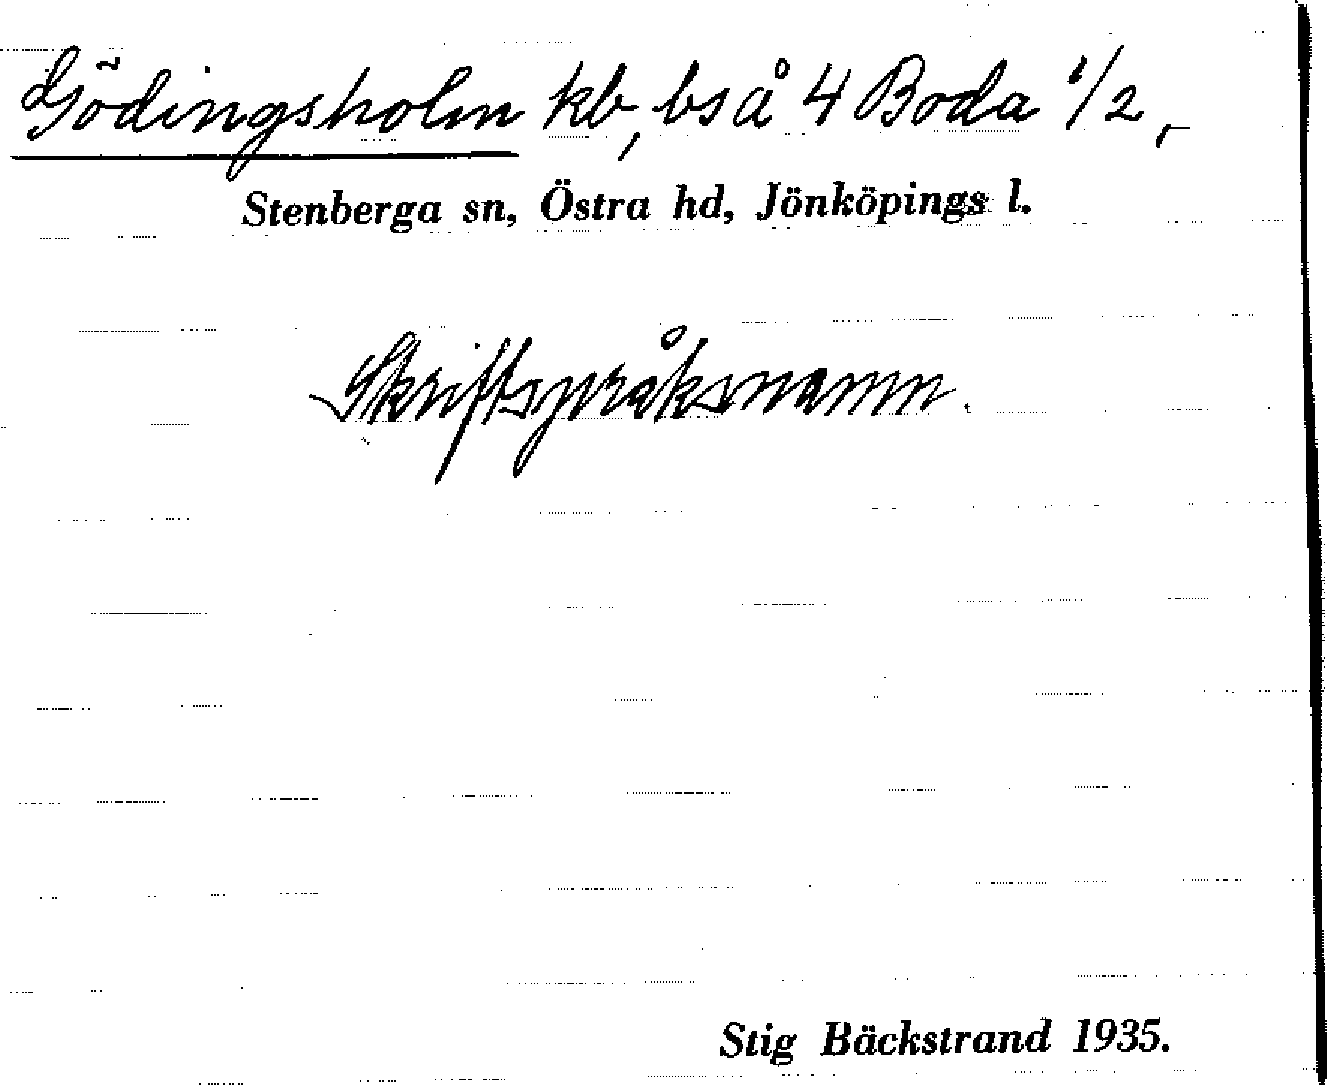 Gödingsholm kb, bs å 4 Boda 1/2,
Stenberga sn, Östra hd, Jönköpings l.
Skriftspråksnamn.
Stig Bäckstrand 1935.